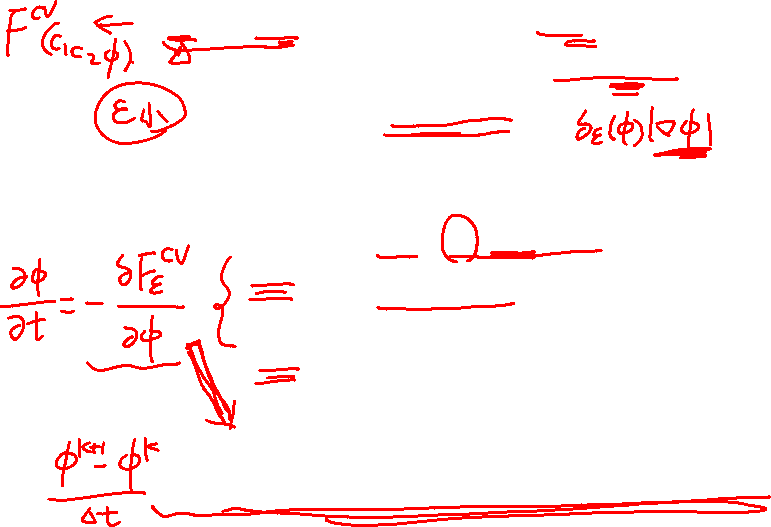 F^{CV}(c₁c₂ϕ)
ε小
δ_ε(ϕ)|∇ϕ|
∂ϕ/∂t = - δF_ε^{CV}/∂ϕ {
ϕ^{k+1} - ϕ^k / Δt